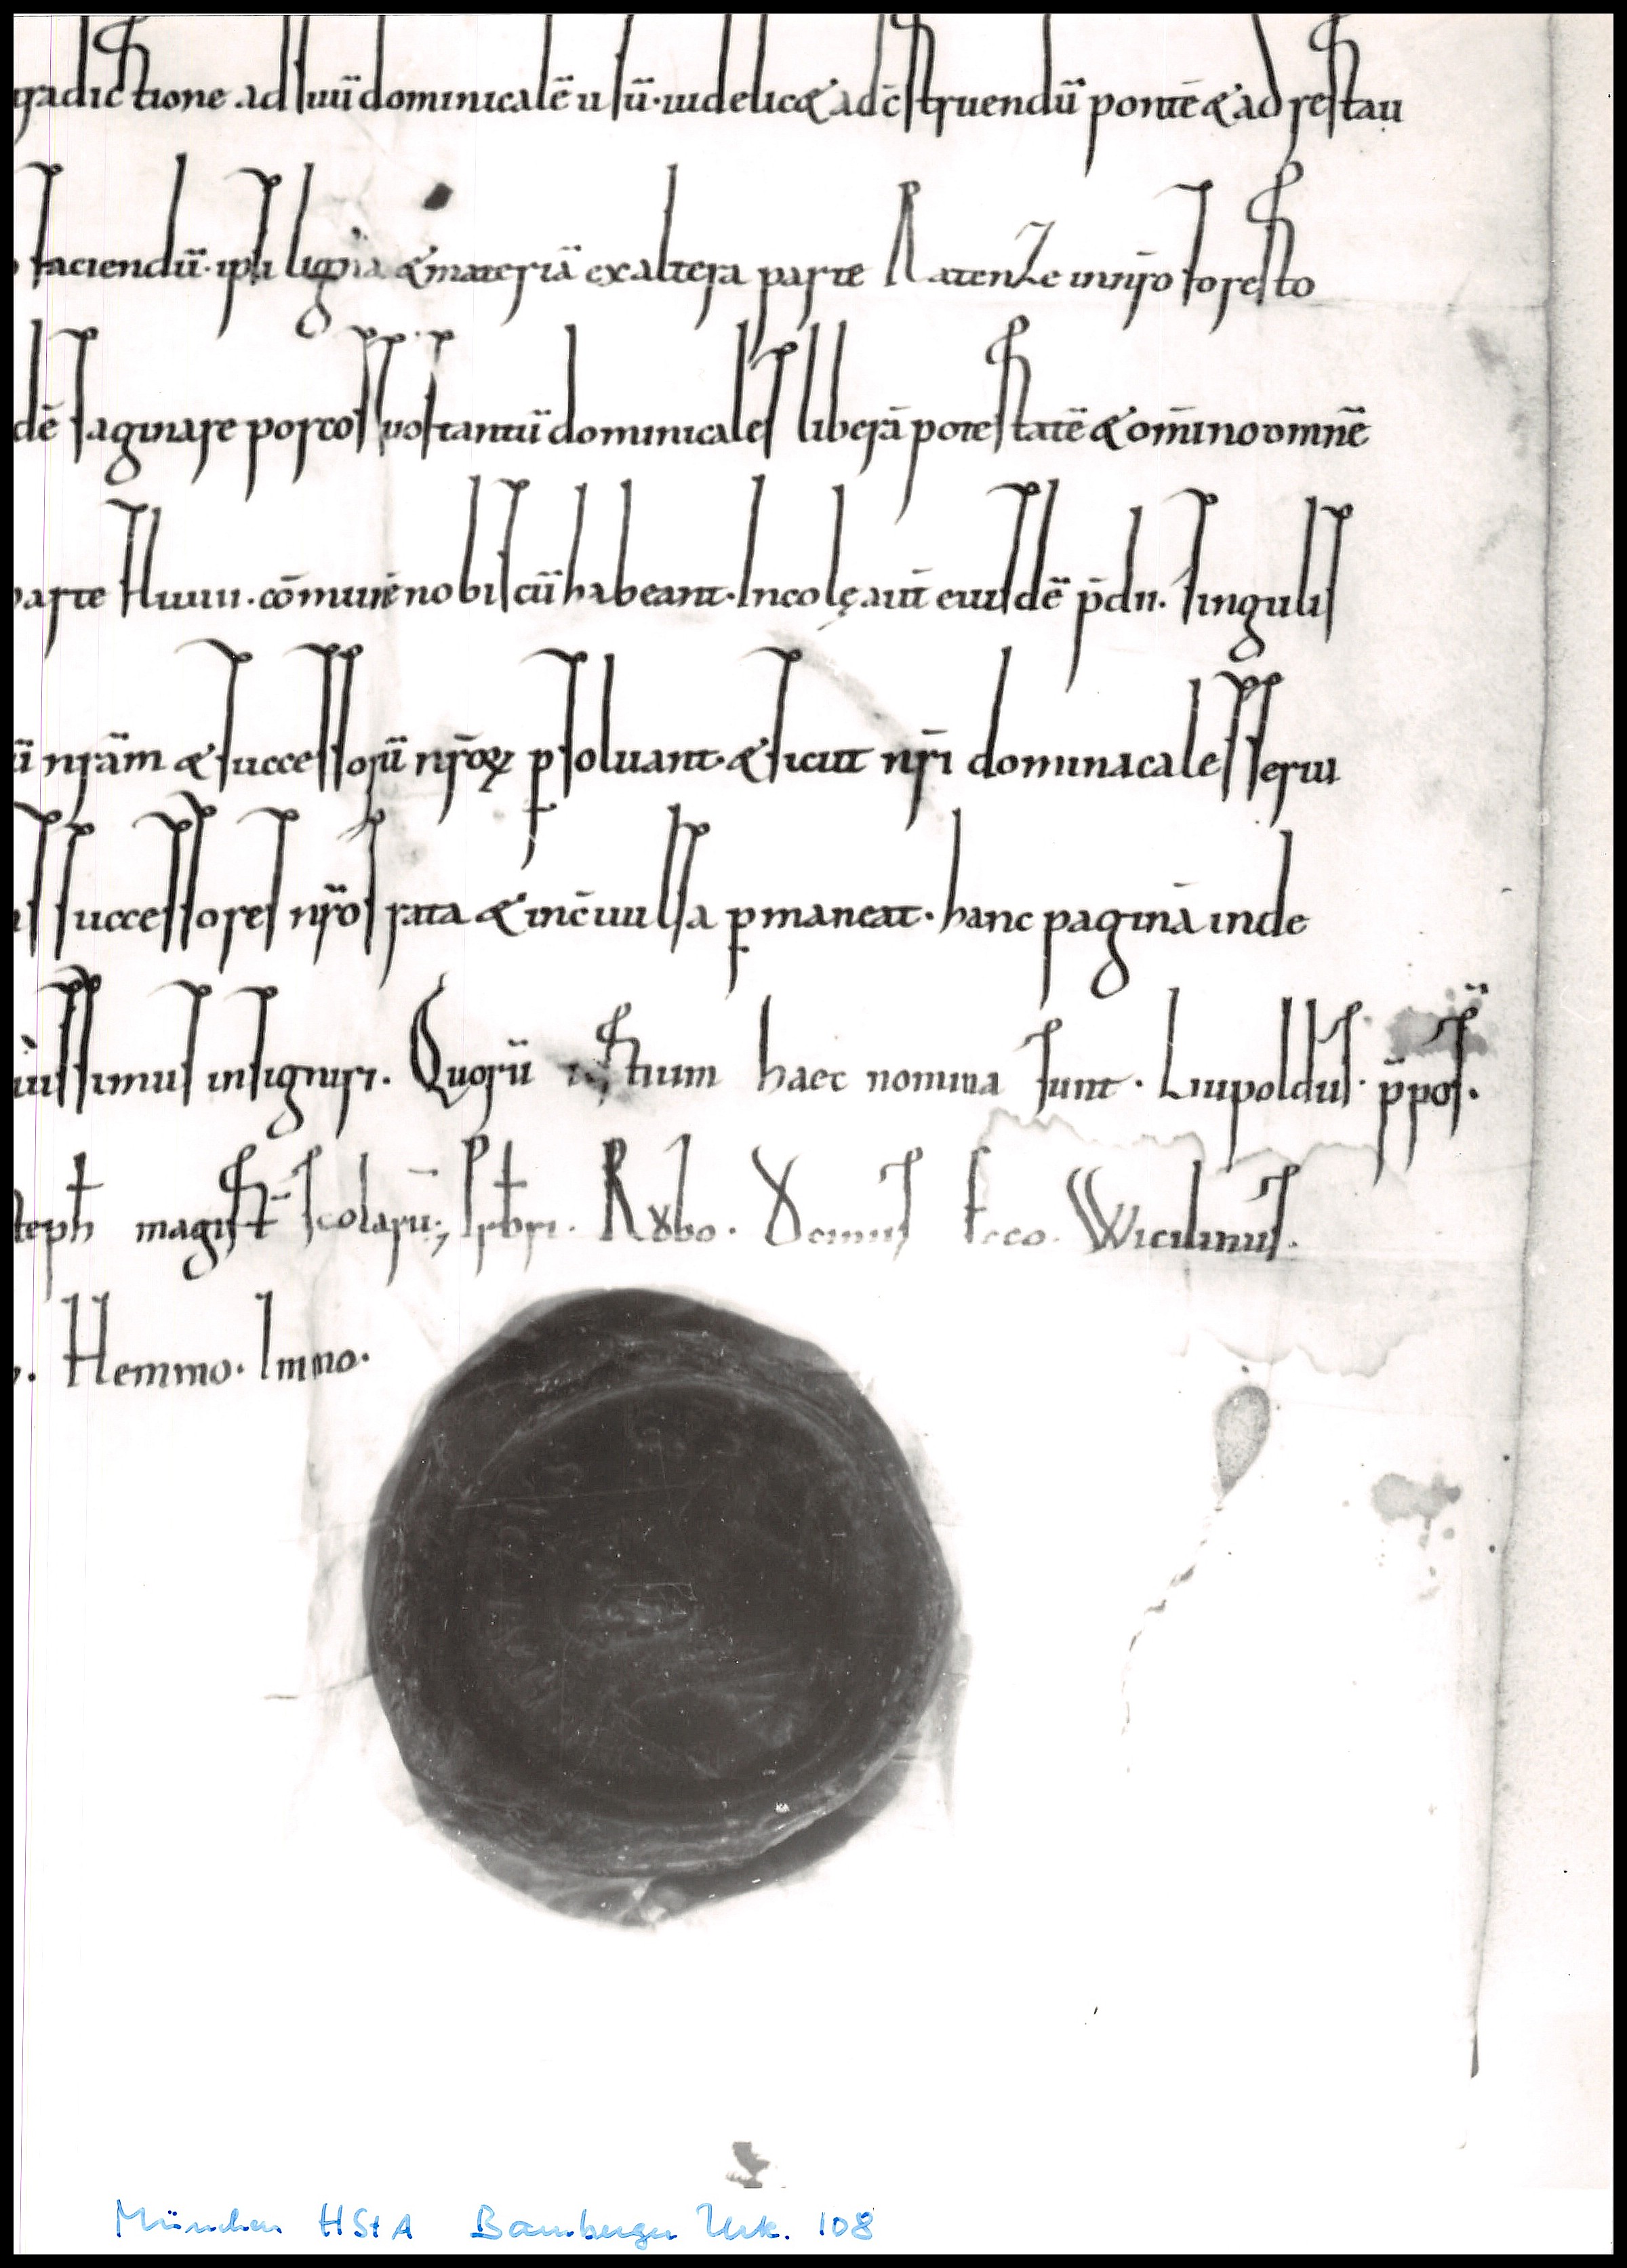 tradictione ad suũ dominicalẽ usũ · uidelic& adc̃struendũ pontẽ & ad restau
faciendũ · ipsi lignã & materiã ex altera parte Ratenze in nr̃o foresto
dẽ saginare porcos suos tantũ dominicales liberã potestatẽ & om̃ino omnẽ
parte fluuii · cõmunẽ nobiscũ habeant · Incolę aut̃ eiusdẽ p̄dii · singulis
ũ nr̃am & successorũ nr̃oꝝ ꝑsoluant · & sicut nr̃i dominacales serui
is successores nr̃os rata & inc̃uulsa ꝑmaneat · hanc paginã inde
uissimus insigniri. Quorũ testium haec nomina sunt · Liupoldus · p̄pos̃.
steph magist̃ scolarũ; Roho · Wicilinus.
. Hemmo · Immo ·
München HStA Bamberger Urk. 108